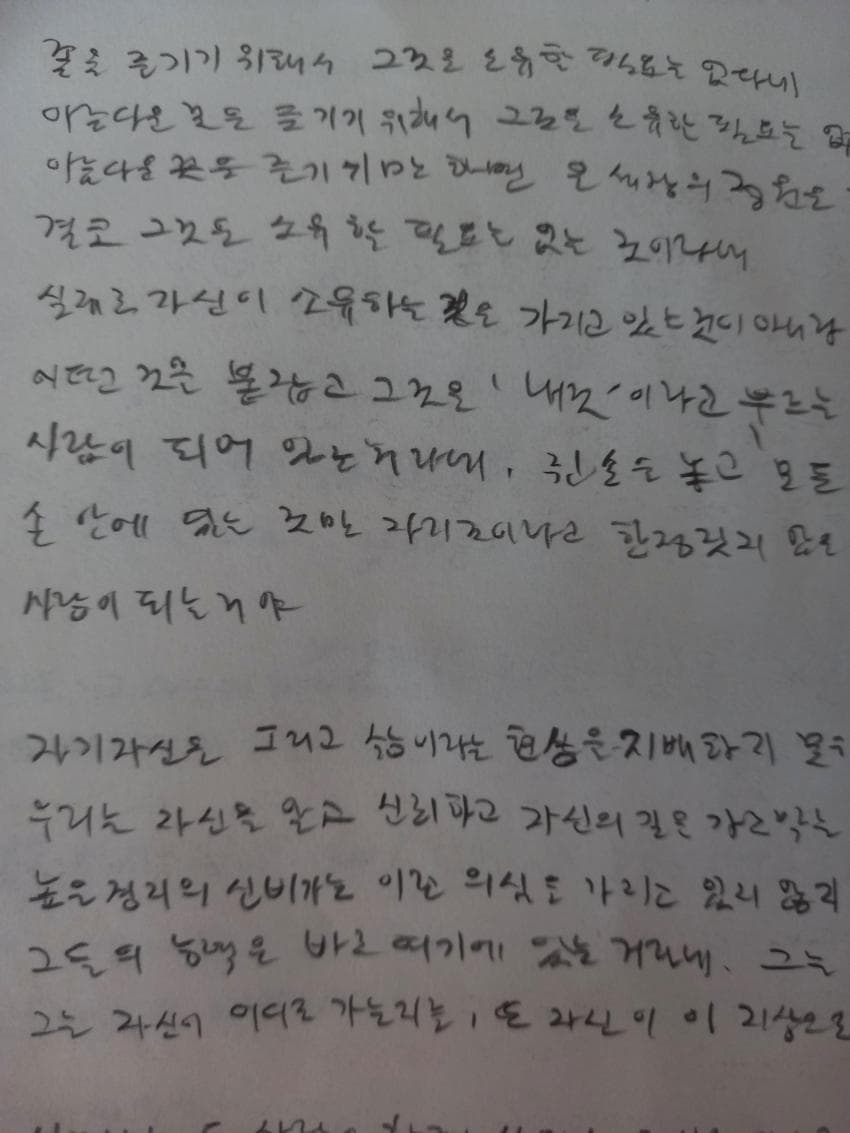 꽃을 즐기기 위해서 그것을 소유할 필요는 없다네
아름다운 꽃을 즐기기 위해서 그것을 소유할 필요는
아름다운 꽃을 즐기기만 하면 온 세상의 정원을
결코 그것을 소유할 필요는 없는 것이라네
실제로 자신이 소유하는 것을 가지고 있는 것이 아니라
어떤 것을 붙잡고 그것을 '내것'이라고 부르는
사람이 되어 있는거라네. 쥔 손을 놓고 모든
손 안에 있는 것만 자기것이라고 한정짓지 않은
사람이 되는거야
자기자신을 그리고 삶이라는 현상을 지배하지
우리는 자신을 알고 신뢰하고 자신의 길을 갈고 닦는
높은 경지의 신비가는 이런 의식을 가지고 있지 않지
그들의 능력은 바로 여기에 있는 거라네. 그는
그는 자신이 어디로 가는지는, 또 자신이 이 지상으로